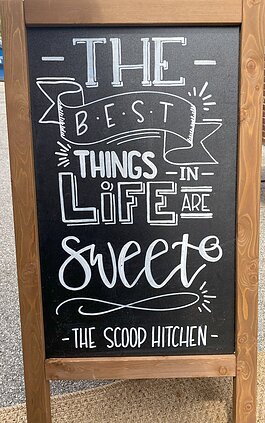 - THE -
B · E · S · T
THINGS - IN -
LiFE ARE
sweet
- THE SCOOP HITCHEN -